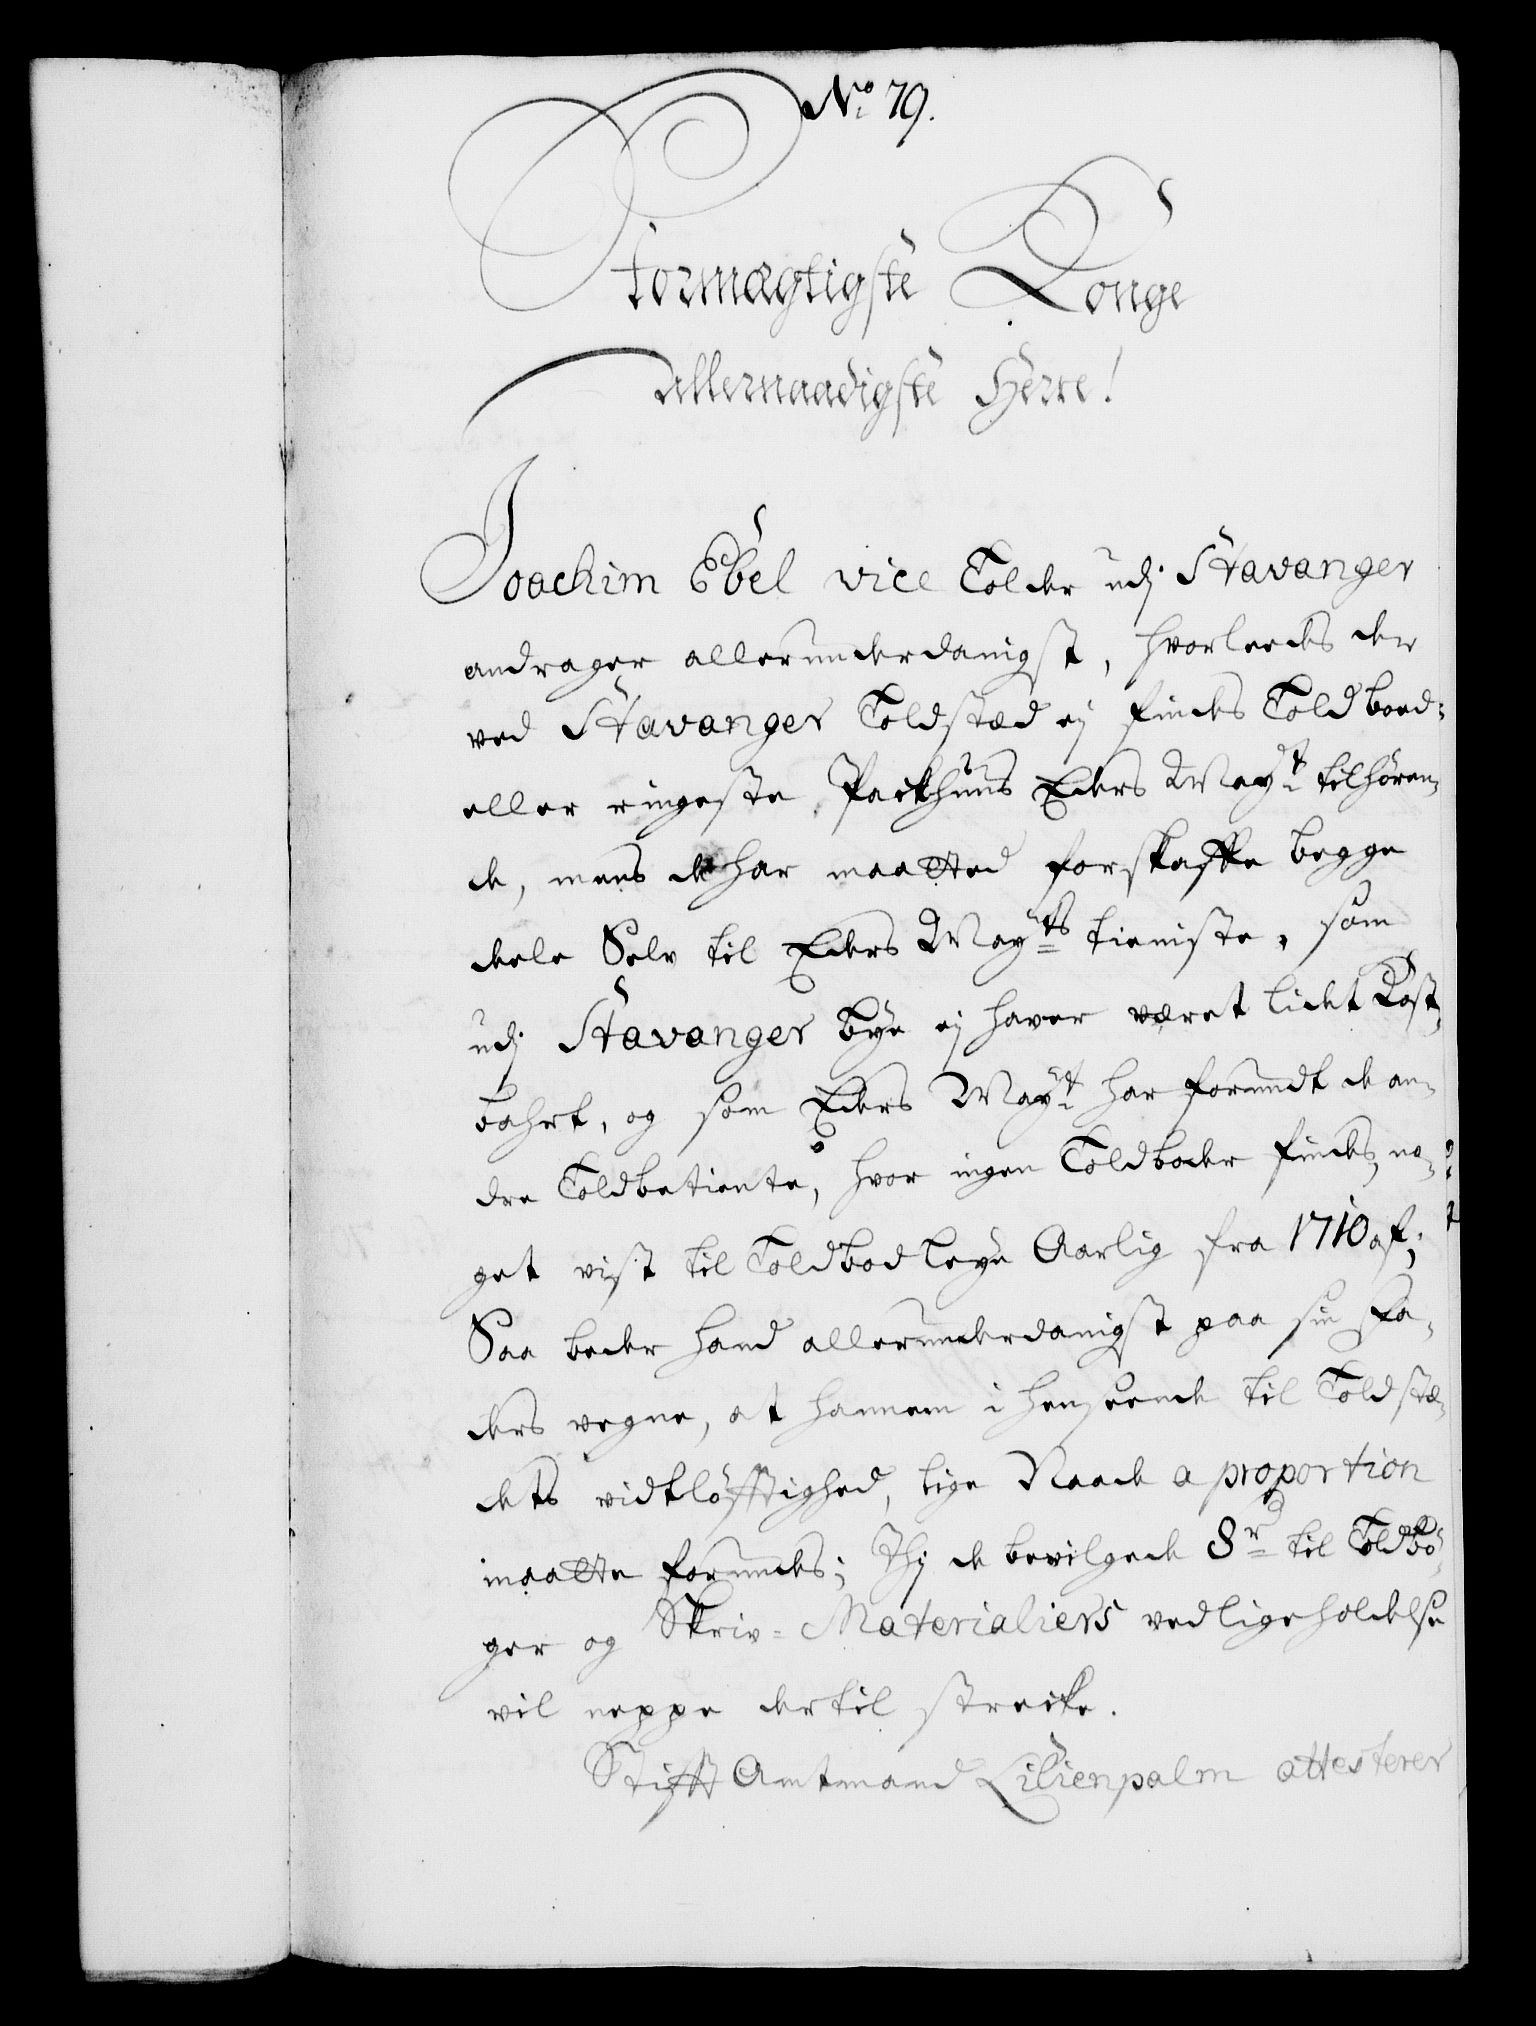 No 79.
Stormægtigste Konge
allernaadigste Herre!
Joachim Ebel vice Tolder udj Stavanger
andrager allerunderdanigst, hvorleedes der
ved Stavanger Toldstæd ej findes Toldboed-
eller ringeste Packhuus Eders Mayt tilhören-
de, mens de har maatted forskaffe begge
deele Selv til Eders Mayts tieniste, som
udj Stavanger bye ej haver været lidet Kost-
bahrt, og som Eders Mayt har forundt de an-
dre Toldbetiente, hvor ingen Toldboder findes, no-
get vist til Toldbod leye Aarlig fra 1710 af;
Saa beder hand allerunderdanigst paa sin Fa-
ders vegne, at hannem i henseende til Toldstæ-
dets vidtlöfftighed, lige Naade a proportion
maatte forundes; Thj de bevilgede 8 rd til Toldbö-
ger og Skriv- Materialiers vedligeholdelse
vil neppe dertil strecke.
Stifft Amtmand Lilienpalm attesterer